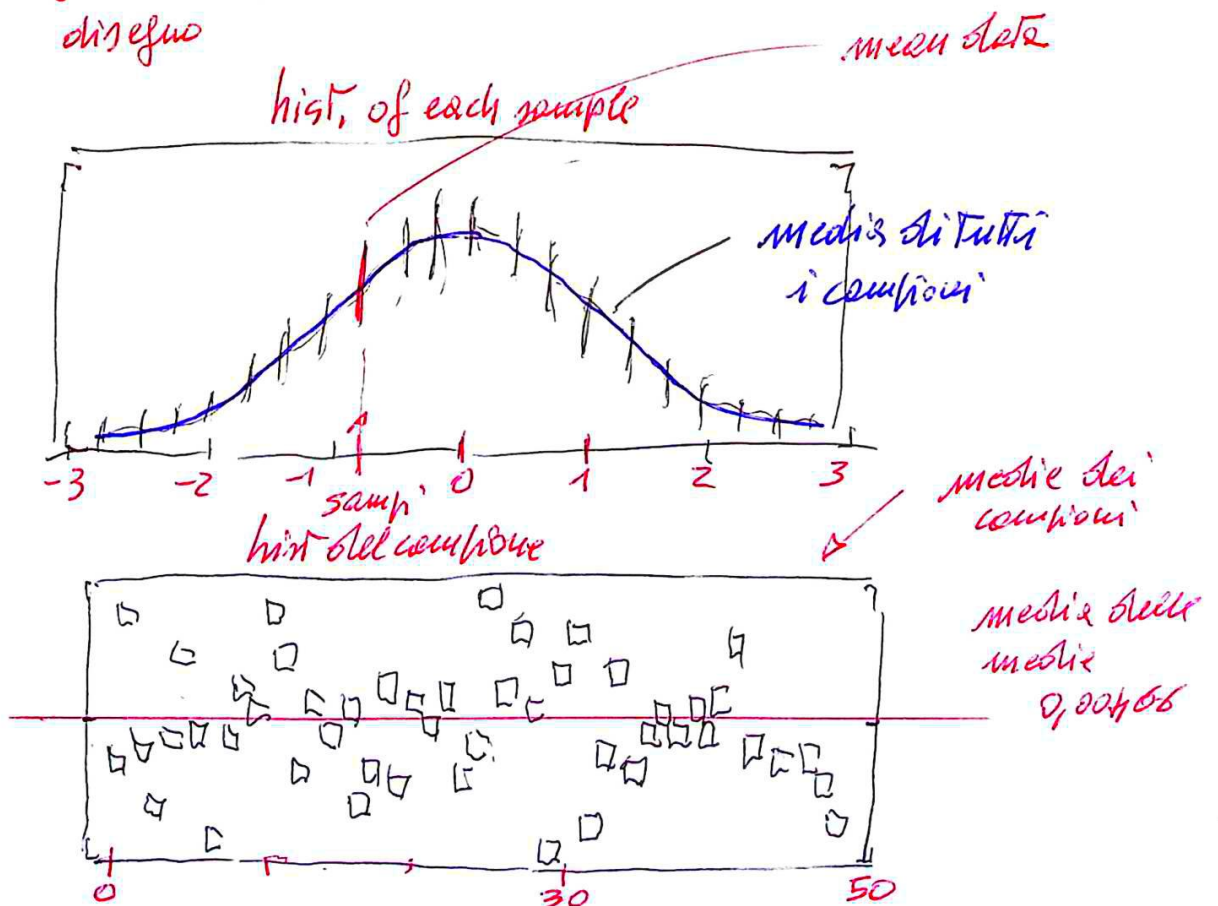 disegno
mean data
hist. of each sample
media di tutti
i campioni
-3 -2 -1 0 1 2 3
samp
hist del campione
medie dei
campioni
media delle
medie
0 30 50